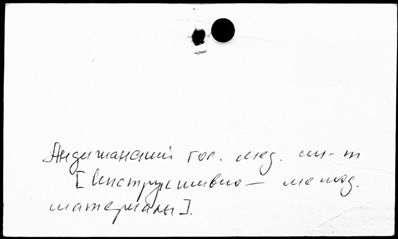 Андижанский гос. мед. ин-т
[Инструктивно-метод.
материалы].